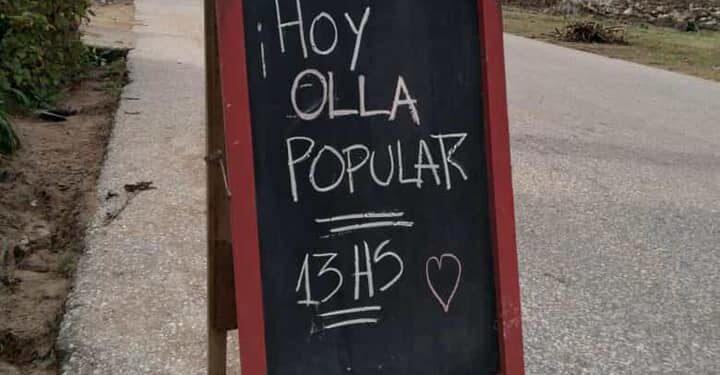 ¡Hoy
OLLA
POPULAR
13 HS